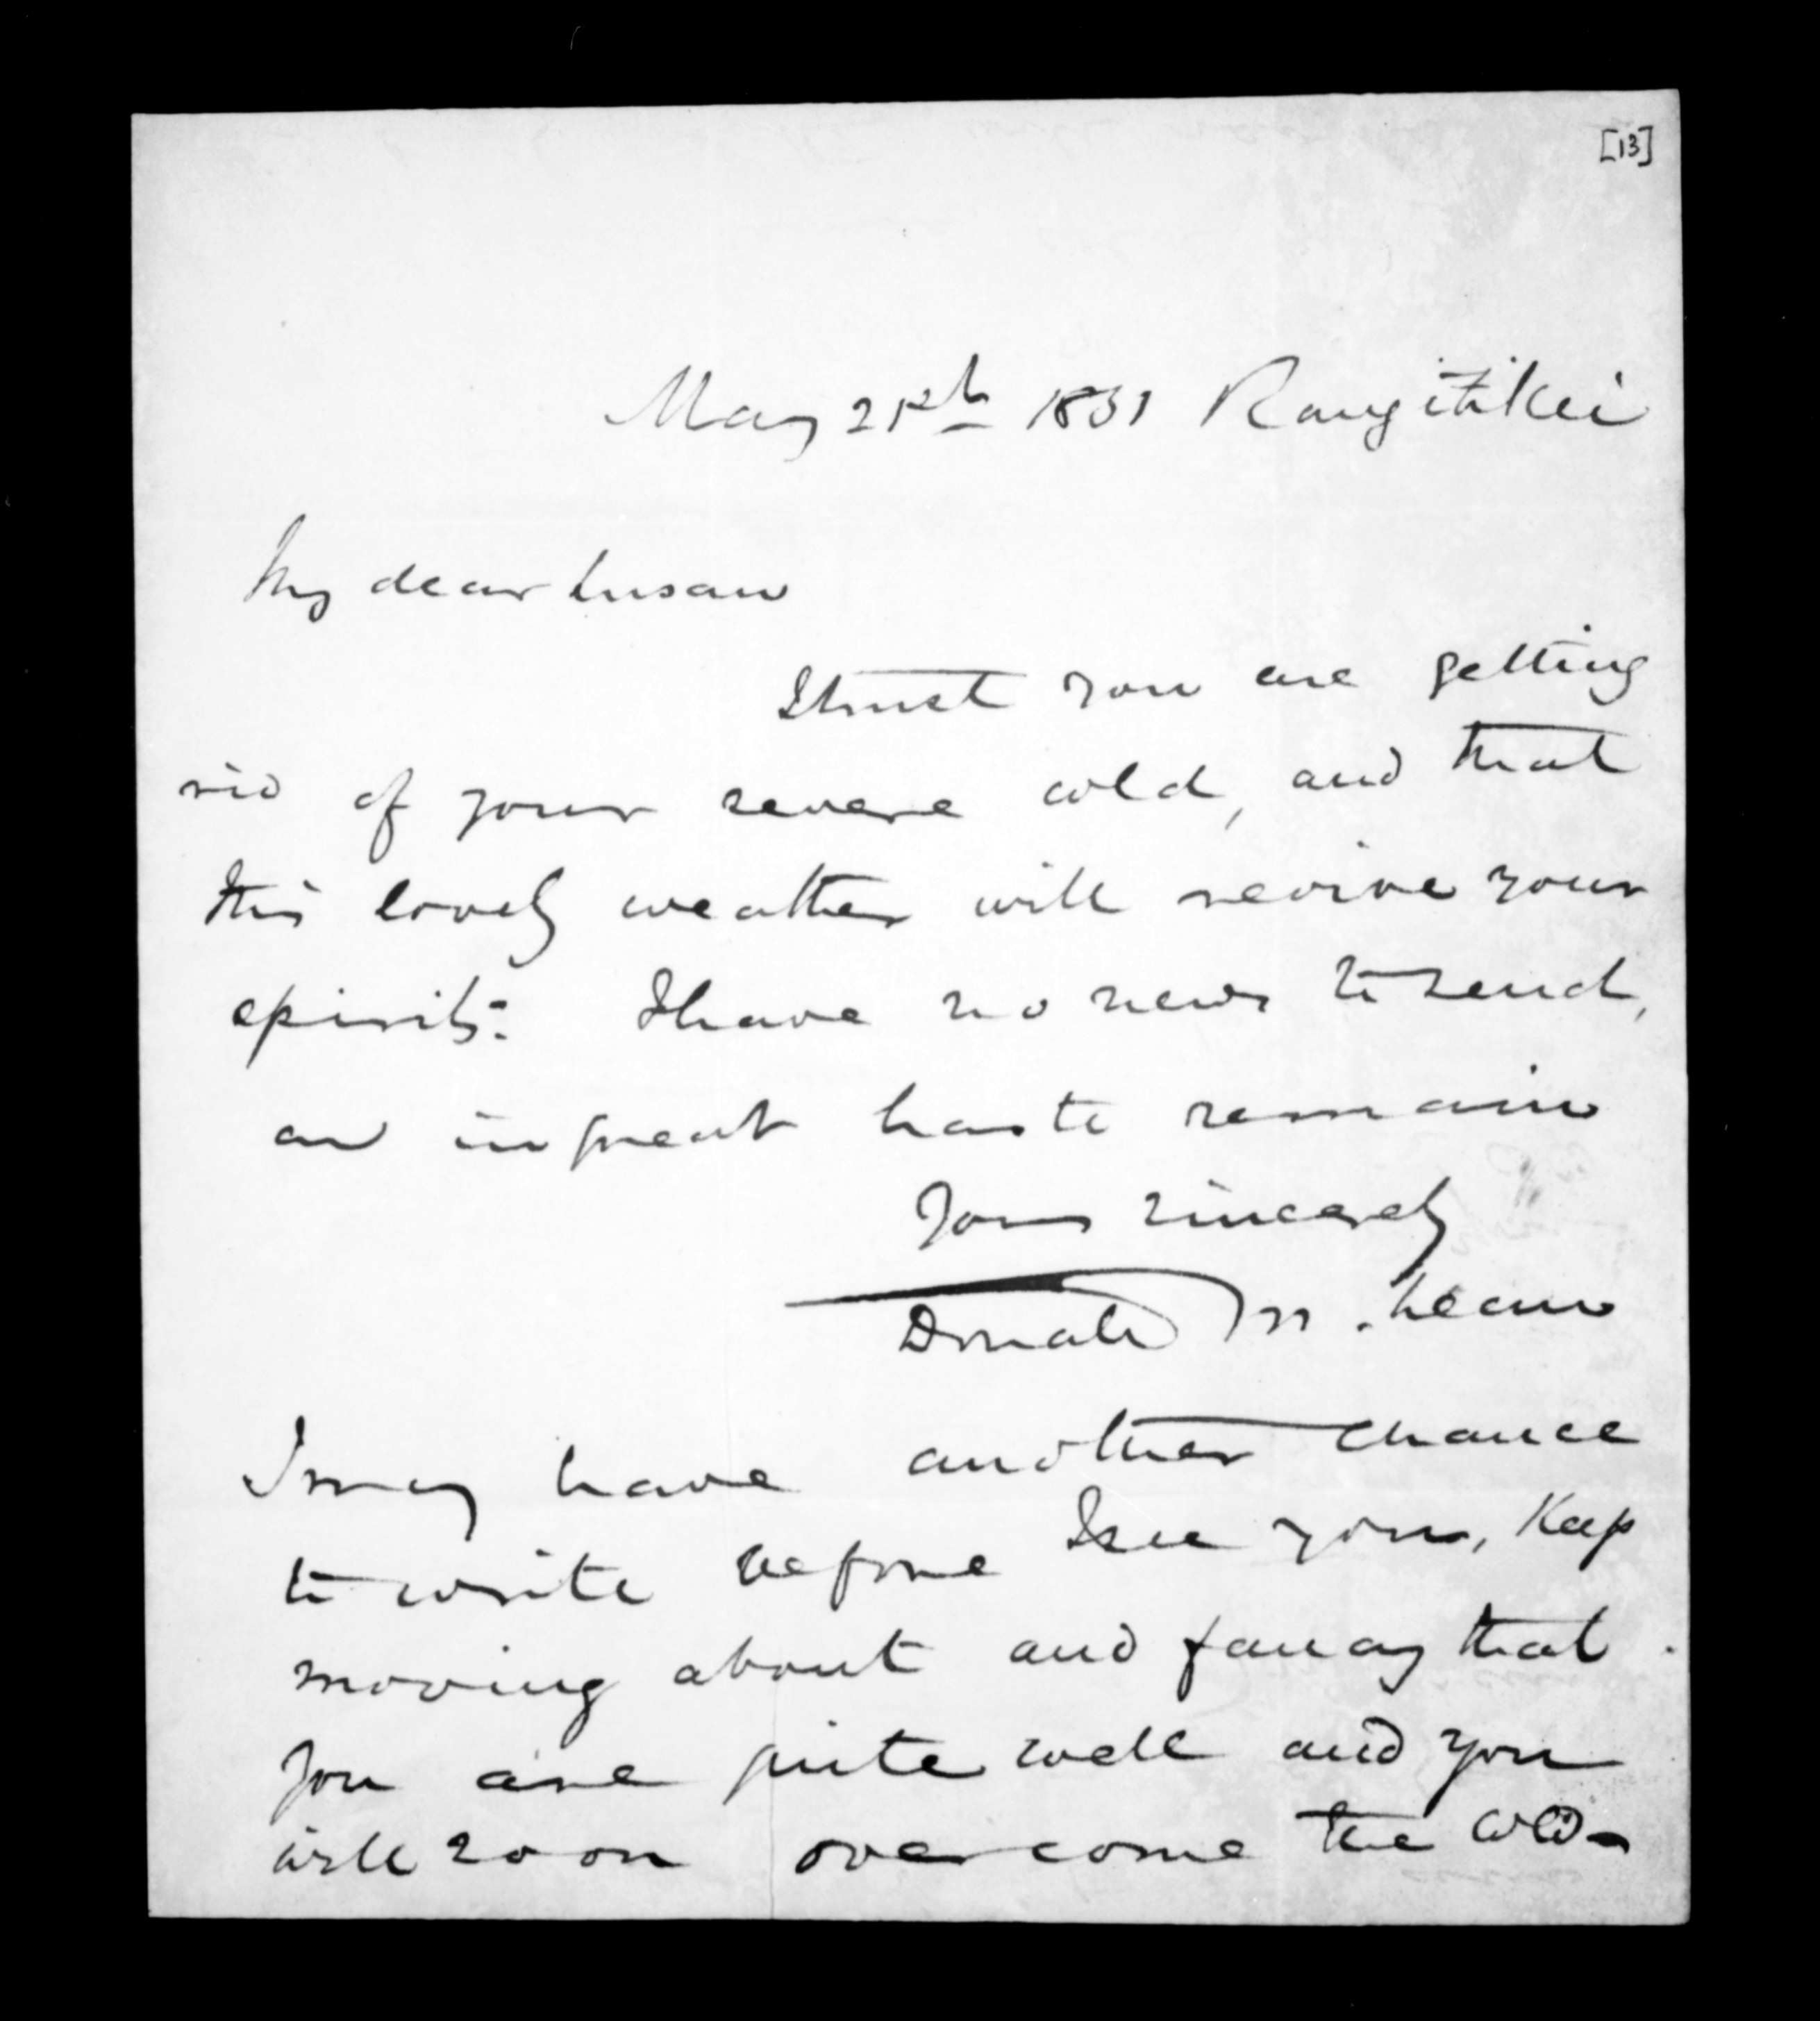 [13]
May 21st 1851 Rangitikei
My dear Susan
I trust you are getting
rid of your severe cold, and that
this lovely weather will revive your
spirits. I have no news to send,
an in great haste remain
Yours sincerely
Donald McLean
I may have another chance
to write before I see you, Keep
moving about and fancy that
you are quite well and you
will soon overcome the cold